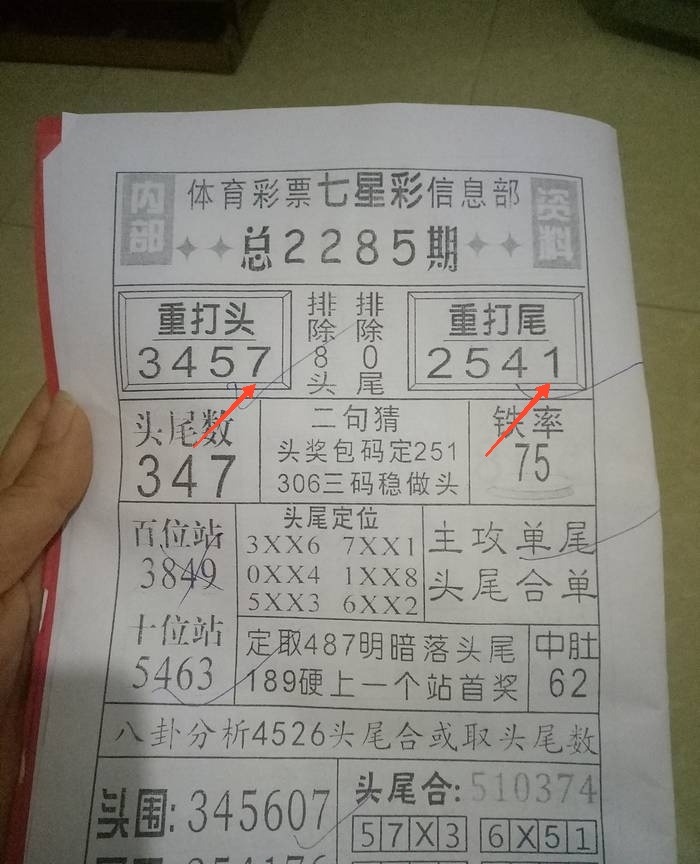 内部
体育彩票七星彩信息部
资料
总2285期
重打头
3457
排除8头
排除0尾
重打尾
2541
头尾数
347
二句猜
头奖包码定251
306三码稳做头
铁率
75
百位站
3849
十位站
5463
头尾定位
3XX6 7XX1
0XX4 1XX8
5XX3 6XX2
主攻单尾
头尾合单
定取487明暗落头尾
189硬上一个站首奖
中肚
62
八卦分析4526头尾合或取头尾数
头围:345607
头尾合:510374
57X3 6X51